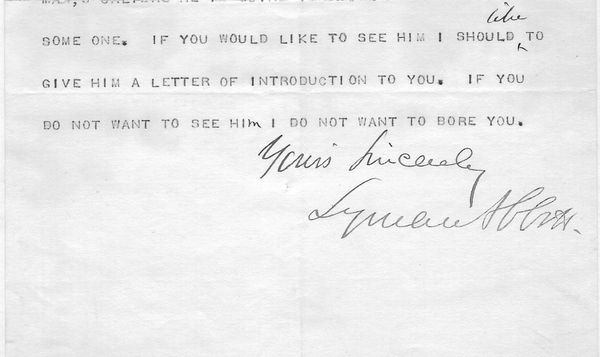 like
SOME ONE. IF YOU WOULD LIKE TO SEE HIM I SHOULD TO
GIVE HIM A LETTER OF INTRODUCTION TO YOU. IF YOU
DO NOT WANT TO SEE HIm I DO NOT WANT TO BORE YOU.
Yours Sincerely
Lyman Abbott.